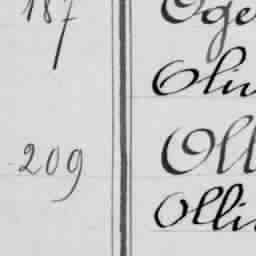 187 Oge
Oliv
209 Oll
Olli